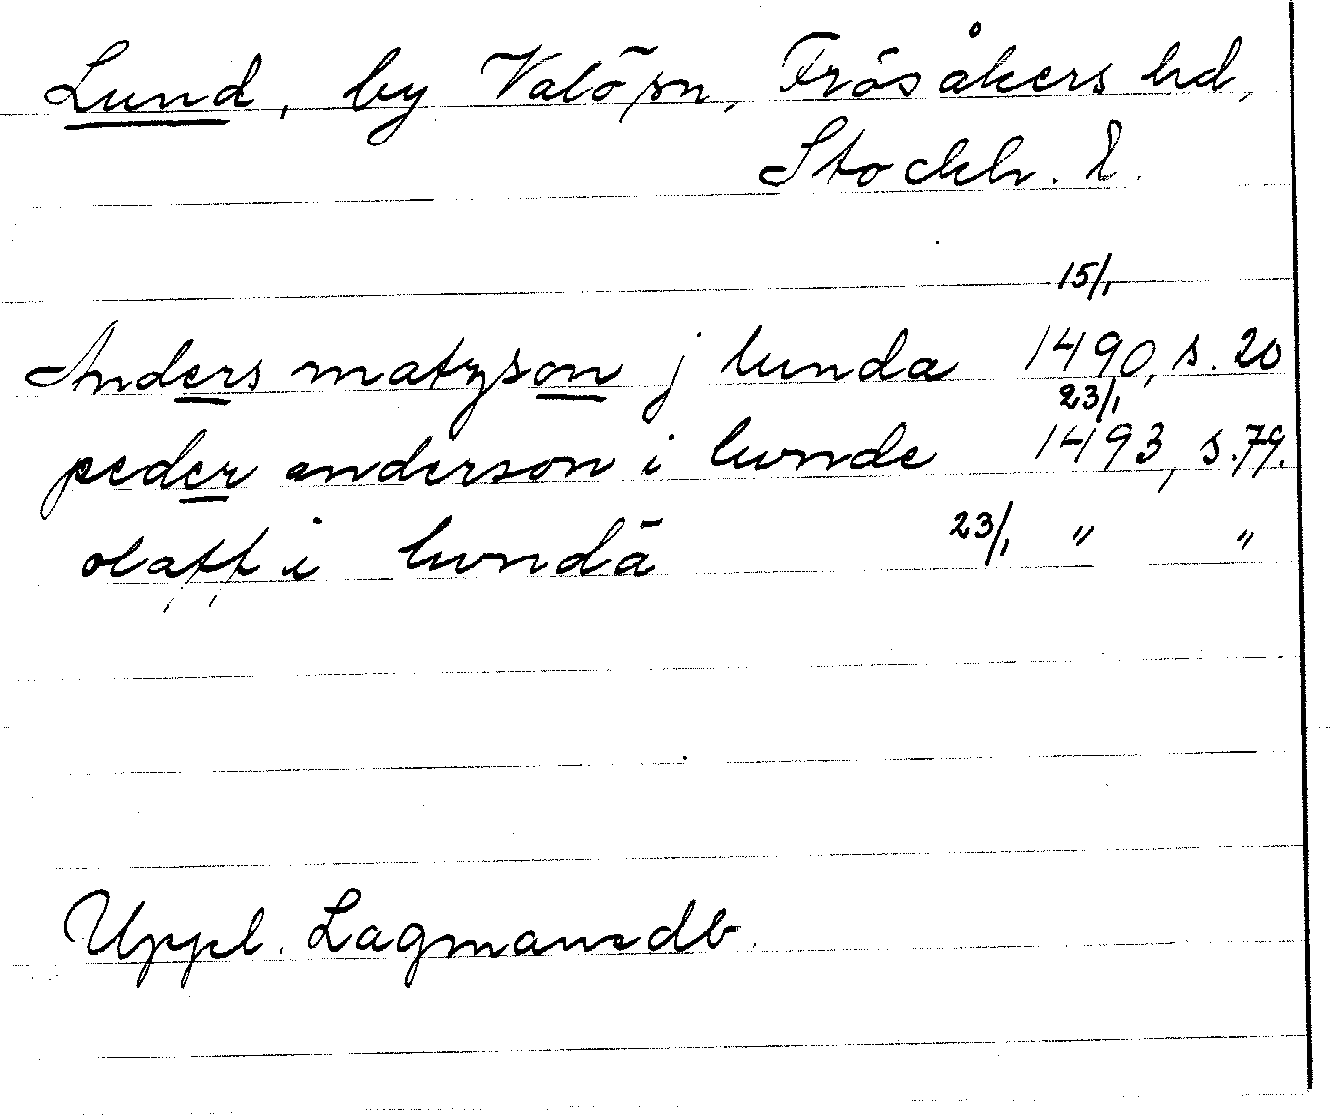 Lund, by Valö sn, Frösåkers hd,
Stockh. l.
15/1
Anders matzson j lunda 1490, s. 20
23/1
peder anderson i lunde 1493, s. 79.
olaff i lundā 23/1 " "
Uppl. Lagmansdb.